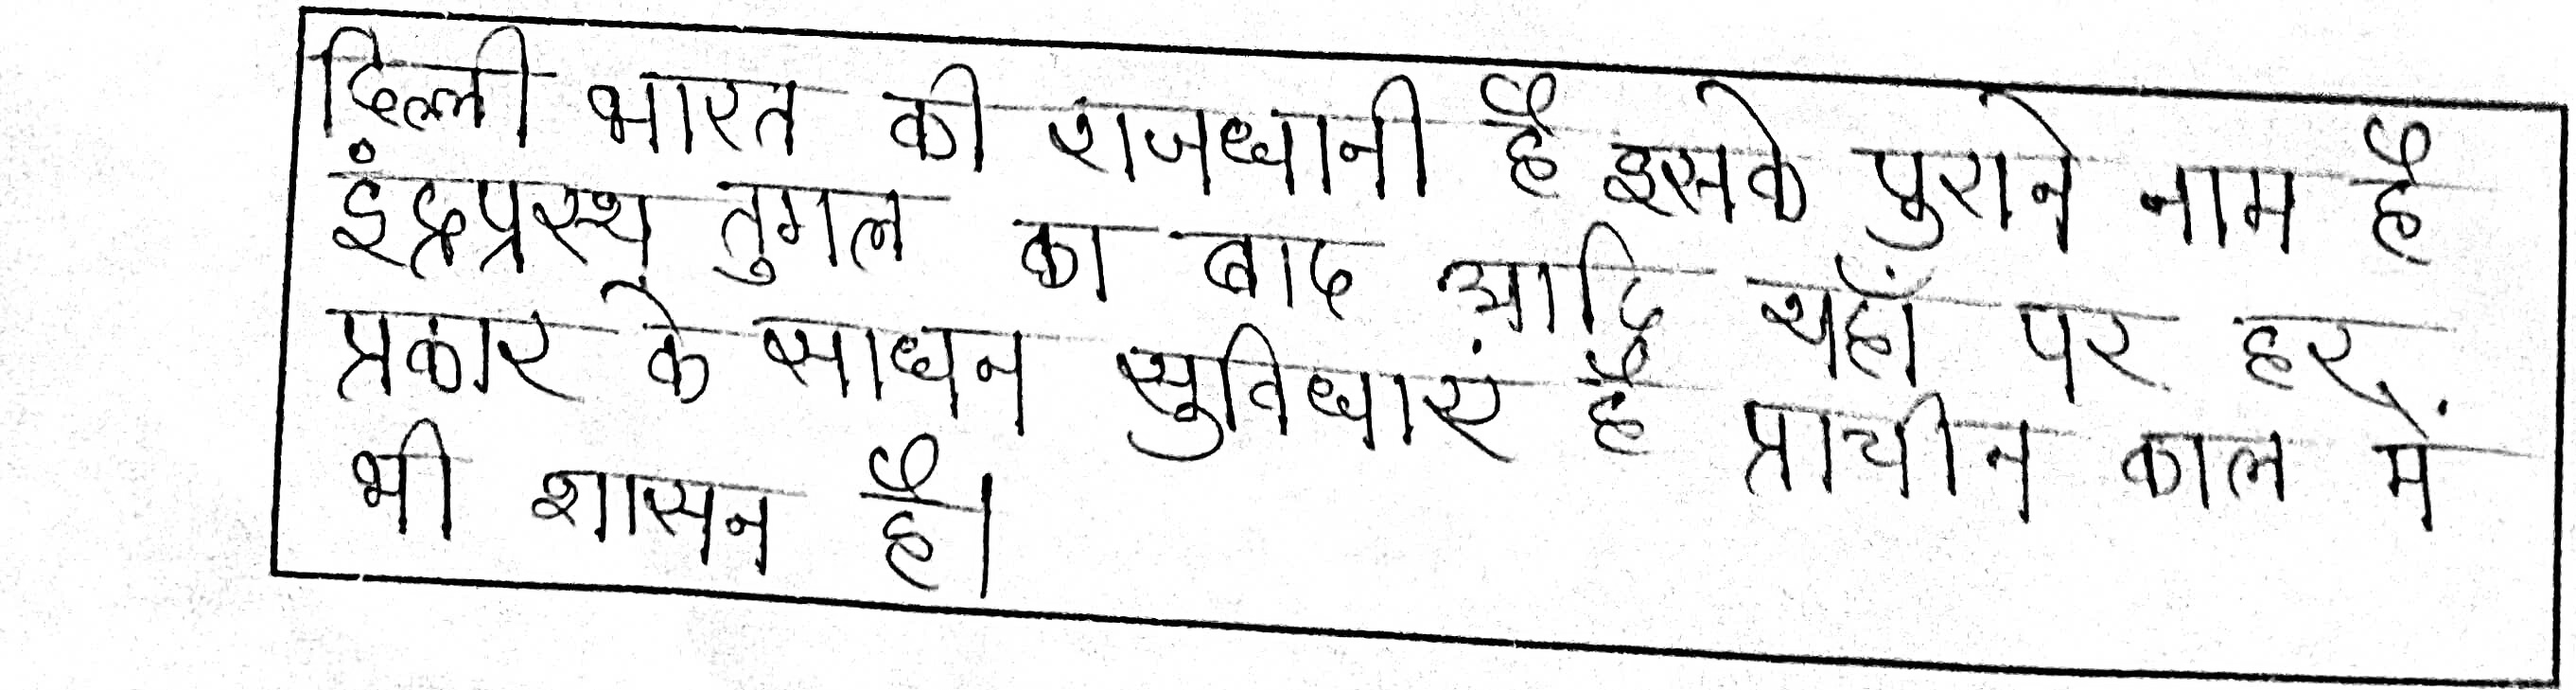 दिल्ली भारत की राजधानी है इसके पुराने नाम है
इंद्रप्रस्थ तुगल का बाद आदि यहाँ पर हर
प्रकार के साधन सुविधाएं है प्राचीन काल में
भी शासन है।